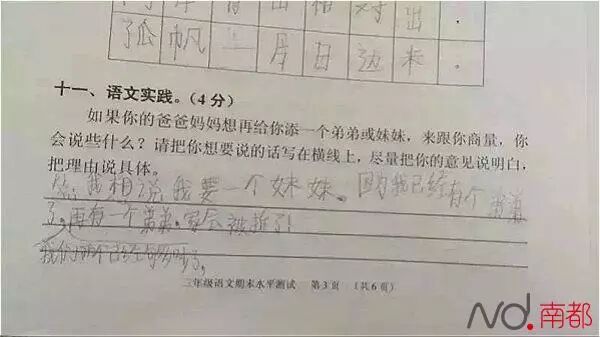 出
了孤帆一片日边来.
十一、语文实践。(4分)
如果你的爸爸妈妈想再给你添一个弟弟或妹妹，来跟你商量，你
会说些什么？请把你想要说的话写在横线上，尽量把你的意见说明白，
把理由说具体。
我想说我要一个妹妹。因为我已经有个弟弟
了。再有一个弟弟，家会被拆了！
我们两个已经够吵了。
三年级语文期末水平测试 第3页 (共6页)
Nd.南都